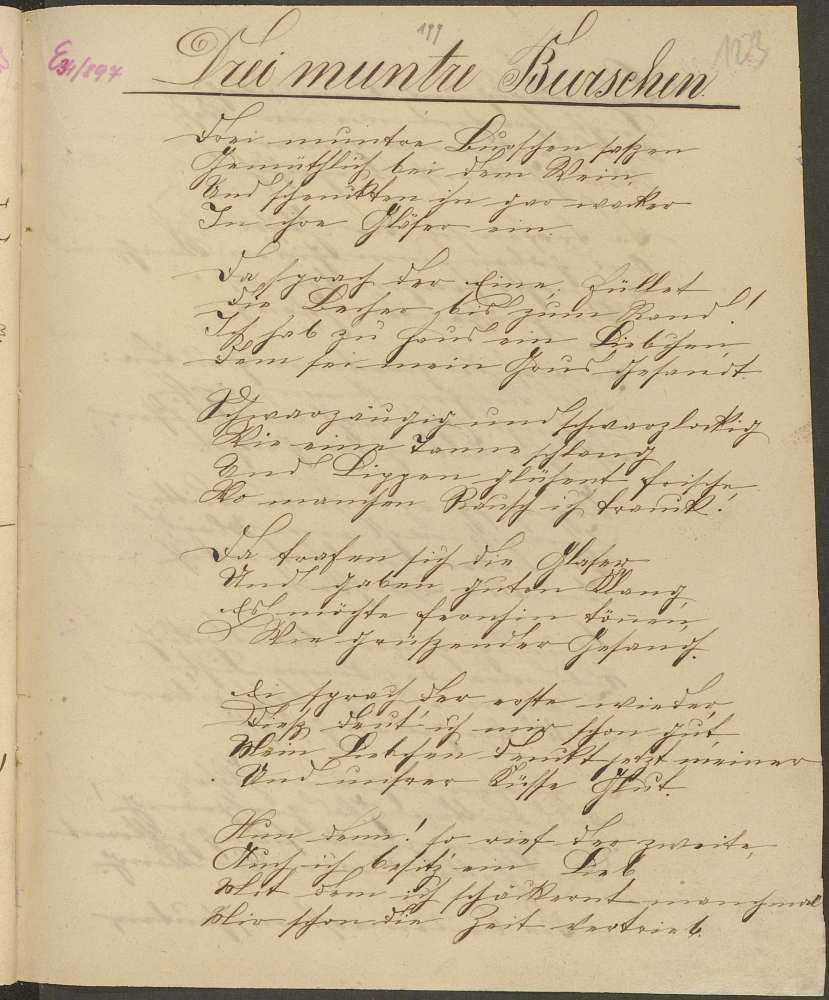 199
123
E31/897
Drei muntre Burschen.
Drei muntre Burschen saßen
Gemüthlich bei dem Wein,
Und schenkten in gar wacker
In ihre Gläser ein.
Da sprach der Eine: Füllet
Die Becher bis zum Rand!
Ich hab zu Haus ein Liebchen,
Dem sei mein Grus gesandt.
Schwarzäugig und schwarzlockig
Wie eine Tanne schlang
Und Lippen glühent frische
Wo manchen Rausch ich trank!
Da trafen sich die Glaser
Und gaben guten Klang,
Es möchte fernhin tönen,
Wie grüßender Gesang.
Ei sprach der erste wieder,
Dieß deut' ich mir schon gut
Mein Liebchen denkt jetzt meiner
Und unsrer Küsse Glut.
Nun denn! so rief der zweite,
Auch ich besitz ein Lieb
Mit dem ich schäckernt manchmal
Mir schon die Zeit vertrieb.